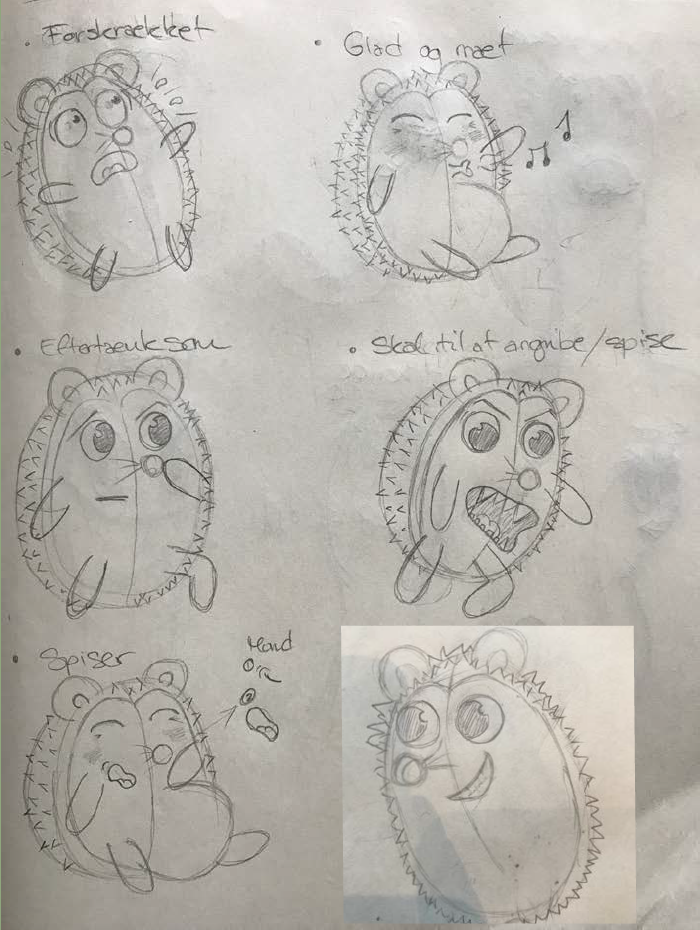 • Forskrækket
• Glad og mæt
• Eftertænksom
• Skal til at angribe/spise
• Spiser